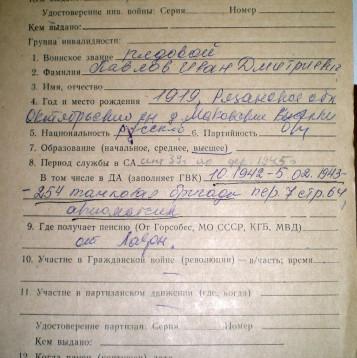 Удостоверение инв. войны: Серия Номер
Кем выдано:
Группа инвалидности:
1. Воинское звание рядовой
2. Фамилия Павлов Иван Дмитриевич
3. Имя, отчество
4. Год и место рождения 1919, Рязановская обл
Октябрьский рн д.
5. Национальность русский 6. Партийность
7. Образование (начальное, среднее, высшее)
8. Период службы в СА 39г. по 1945г
В том числе в ДА (заполняет ГВК) 10.1942-5.02.1943-
-254 танковая бригада пер. 7 стр. 64
9. Где получает пенсию (От Горсобес, МО СССР, КГБ, МВД)
от
10. Участие в Гражданской войне (революции) — в/часть; время
—
11. Участие в партизанском движении (где, когда)
—
Удостоверение партизан. Серия Номер
Кем выдано: